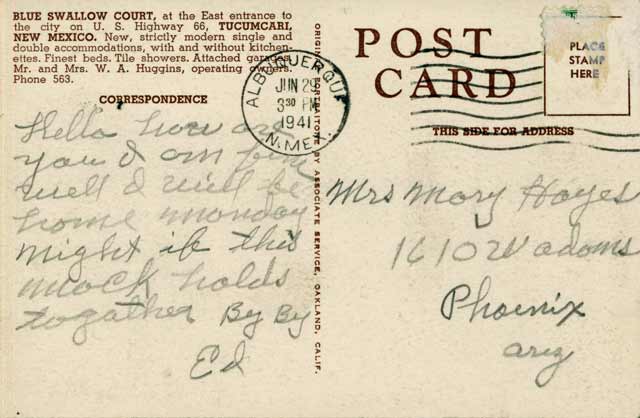 BLUE SWALLOW COURT, at the East entrance to
the city on U. S. Highway 66, TUCUMCARI,
NEW MEXICO. New, strictly modern single and
double accommodations, with and without kitchen-
ettes. Finest beds. Tile showers. Attached garages.
Mr. and Mrs. W. A. Huggins, operating owners.
Phone 563.
CORRESPONDENCE
Hello how are
you I am fine
well I will be
home monday
night if this
mock holds
togather By By
Ed
ALBUQUERQUE
JUN 29
3 30 PM
1941
N.MEX.
POST
CARD
PLACE
STAMP
HERE
THIS SIDE FOR ADDRESS
Mrs Mary Hayes
1610 W adams
Phoenix
ariz
BY ASSOCIATE SERVICE, OAKLAND, CALIF.